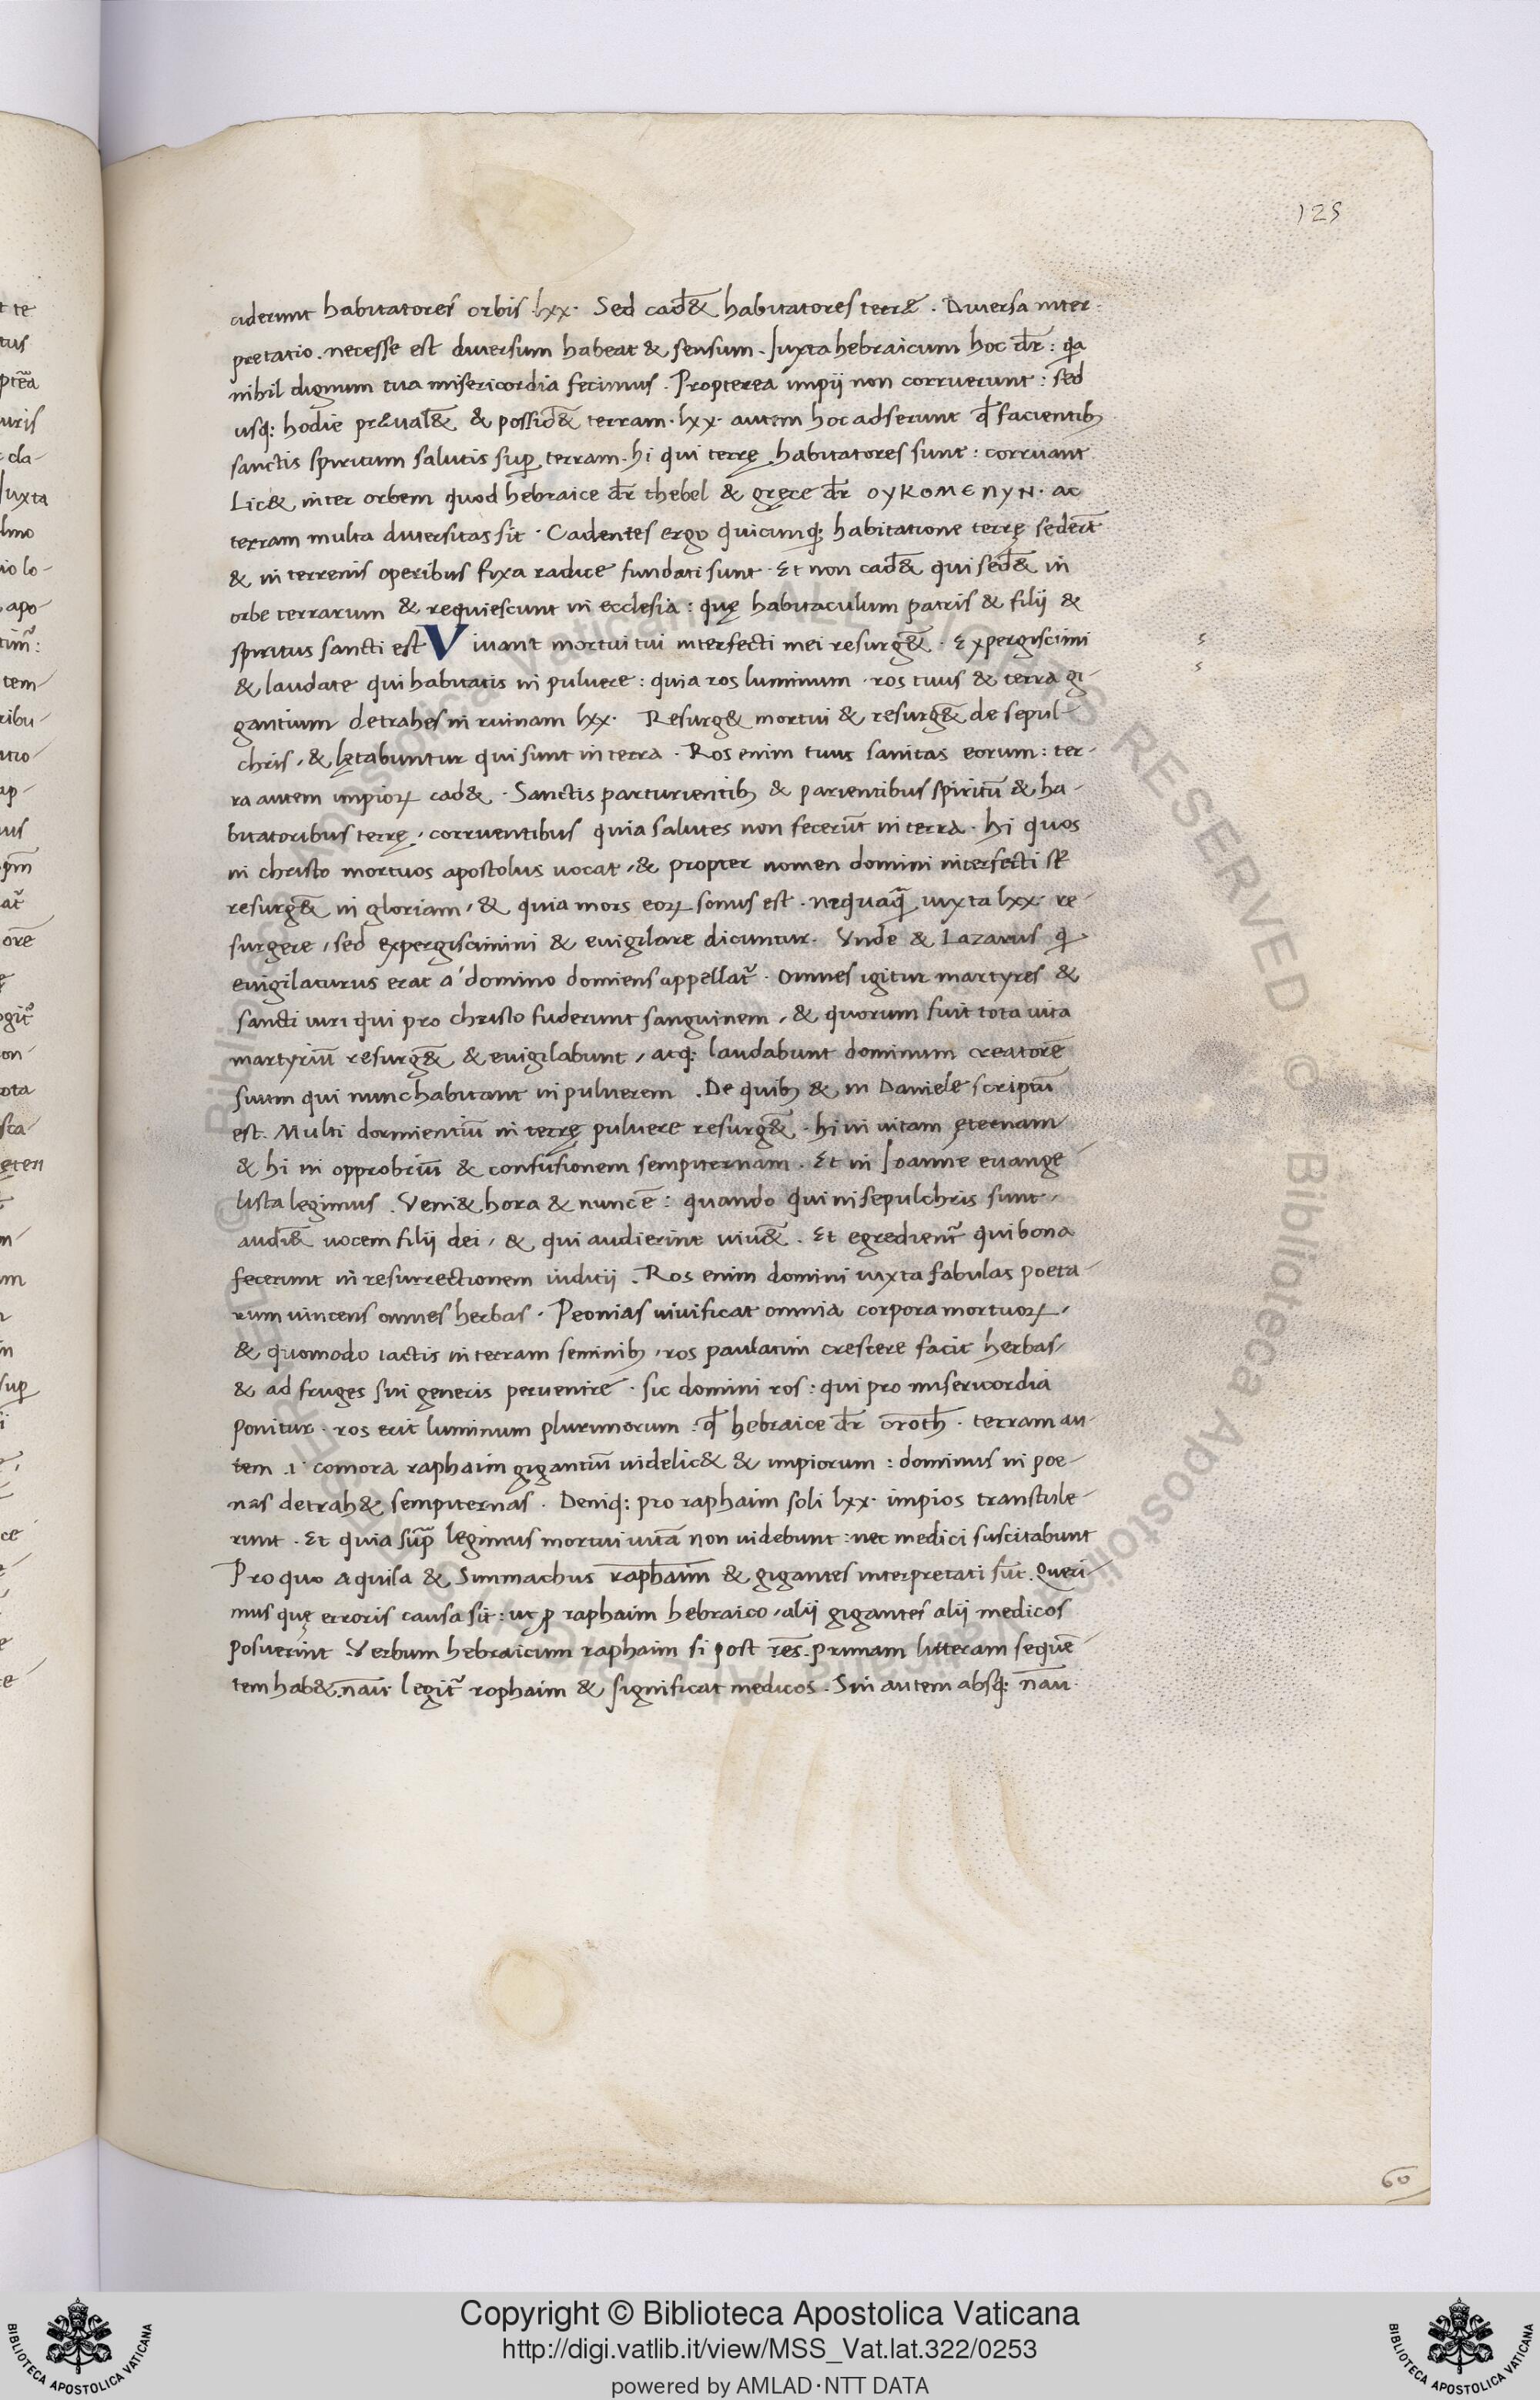 125
ciderunt habitatores orbis lxx. Sed cad̄& habitatores terr&. Diuersa inter-
pretatio. necesse est diuersum habeat & sensum. Iuxta hebraicum hoc dr̄: q̄a
nihil dignum tua misericordia fecimus. Propterea impij non corruerunt: sed
usq; hodie pr&ual̄& & possid̄& terram. lxx. autem hoc adserunt qd̄ facientibꝫ
sanctis spiritum salutis suꝑ terram. hi qui terrę habitatores sunt: corruant
Lic& inter orbem quod hebraice dr̄ thebel & gręce dr̄ ΟΥΚΟΜΕΝΥΝ. ac
terram multa diuersitas sit. Cadentes ergo quicunq; habitatione terrę sederūt
& in terrenis operibus fixa radice fundati sunt. Et non cad̄& qui sed̄& in
orbe terrarum & requiescunt in ecclesia: quę habitaculum patris & filij &
spiritus sancti est Viuant mortui tui interfecti mei resurḡ&. Expergiscimi
& laudate qui habitatis in puluere: quia ros luminum. ros tuus & terra gi-
gantium detrahes in ruinam lxx. Resurg& mortui & resurḡ& de sepul-
chris, & lętabuntur qui sunt in terra. Ros enim tuus sanitas eorum: ter-
ra autem impioꝝ cad&. Sanctis parturientibꝫ & parientibus spiritū & ha-
bitatoribus terrę, corruentibus quia salutes non fecerūt in terra. hi quos
in christo mortuos apostolus uocat, & propter nomen domini interfecti st̄
resurḡ& in gloriam, & quia mors eoꝝ somus est. nequaq̄ iuxta lxx. re-
surgere, sed expergiscimini & euigilare dicuntur. Vnde & Lazarus q
euigilaturus erat a' domino domiens appellat᷑. Omnes igitur martyres &
sancti uiri qui pro christo fuderunt sanguinem, & quorum fuit tota uita
martyriū resurḡ& & euigilabunt, atq; laudabunt dominum creatorē
suum qui nunc habitant in puluerem. De quibꝫ & in Daniele scriptū
est. Multi dormientiū in terrę puluere resurḡ&. hi in uitam ęternam
& hi in opprobriū & confusionem sempiternam. Et in Joanne euange
lista legimus. Veni& hora & nunc ē: quando qui in sepulchris sunt,
audi&̄ uocem filij dei, & qui audierint uiu&̄. Et egredient᷑ qui bona
fecerunt in resurrectionem iuditij. Ros enim domini iuxta fabulas poeta-
rum uincens omnes herbas. Peonias uiuificat omnia corpora mortuoꝝ,
& quomodo iactis in terram seminibꝫ, ros paulatim crescere facit herbas,
& ad fruges sui generis peruenire. sic domini ros: qui pro misericordia
ponitur. ros erit luminum plurimorum. qd̄ hebraice dr̄ ōroth. terram au-
tem .i. comora raphaim gigantiū uidelic& & impiorum: dominus in poe-
nas detrah& sempiternas. Deniq; pro raphaim soli lxx. impios transtule-
runt. Et quia sup̄ legimus mortui uitā non uidebunt: nec medici suscitabunt
Pro quo Aquila & Simmachus raphaim & gigantes interpretati sūt. Queri-
mus quę erroris causa sit: ut ꝓ raphaim hebraico, alij gigantes alij medicos
posuerint. Verbum hebraicum raphaim si post res̄. primam litteram sequē-
tem hab& nau̅ legit᷑ rophaim & significat medicos. Sin autem absq; nau̅
60
Copyright © Biblioteca Apostolica Vaticana
http://digi.vatlib.it/view/MSS_Vat.lat.322/0253
powered by AMLAD·NTT DATA